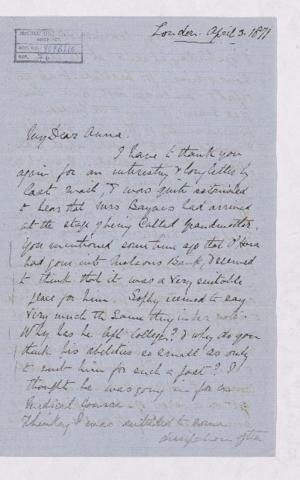 London. April 3. 1871
My Dear Anna.
I have to thank you
again for an interesting & long letter by
last mail, & was quite astonished
to hear that Mrs Baynes had arrived
at the stage of being called Grandmother.
You mentioned some time ago that
had gone into Molsons Bank, & seemed
to think that it was a very suitable
place for him. Sophy seemed to say
very much the same thing in her note.
Why has he left College? & why do you
think his abilities so small as only
to suit him for such a post? I
thought he was going in for
Medical Course
Thinking I was entitled to some